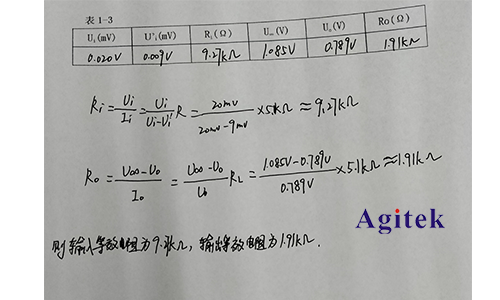 表 1-3
Uᵢ(mV) U'ᵢ(mV) Rᵢ(Ω) U∞(mV) Uₒ(mV) Ro(Ω)
0.020V 0.009V 9.27kΩ 1.085V 0.789V 1.91kΩ
Ri = Ui/Ii = Ui/(Ui-Ui') R = 20mv/(20mv-9mv) ×5.1kΩ ≈ 9.27kΩ
Ro = (U∞-Uo)/Io = (U∞-Uo)/Uo RL = (1.085V-0.789V)/0.789V ×5.1kΩ ≈ 1.91kΩ
Agitek
则输入等效电阻为9.27kΩ, 输出等效电阻为1.91kΩ.